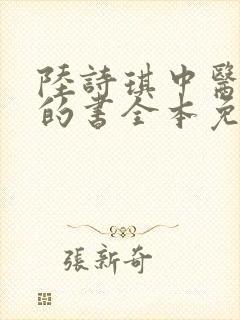 陸詩琪中醫
的書全本免
張新奇